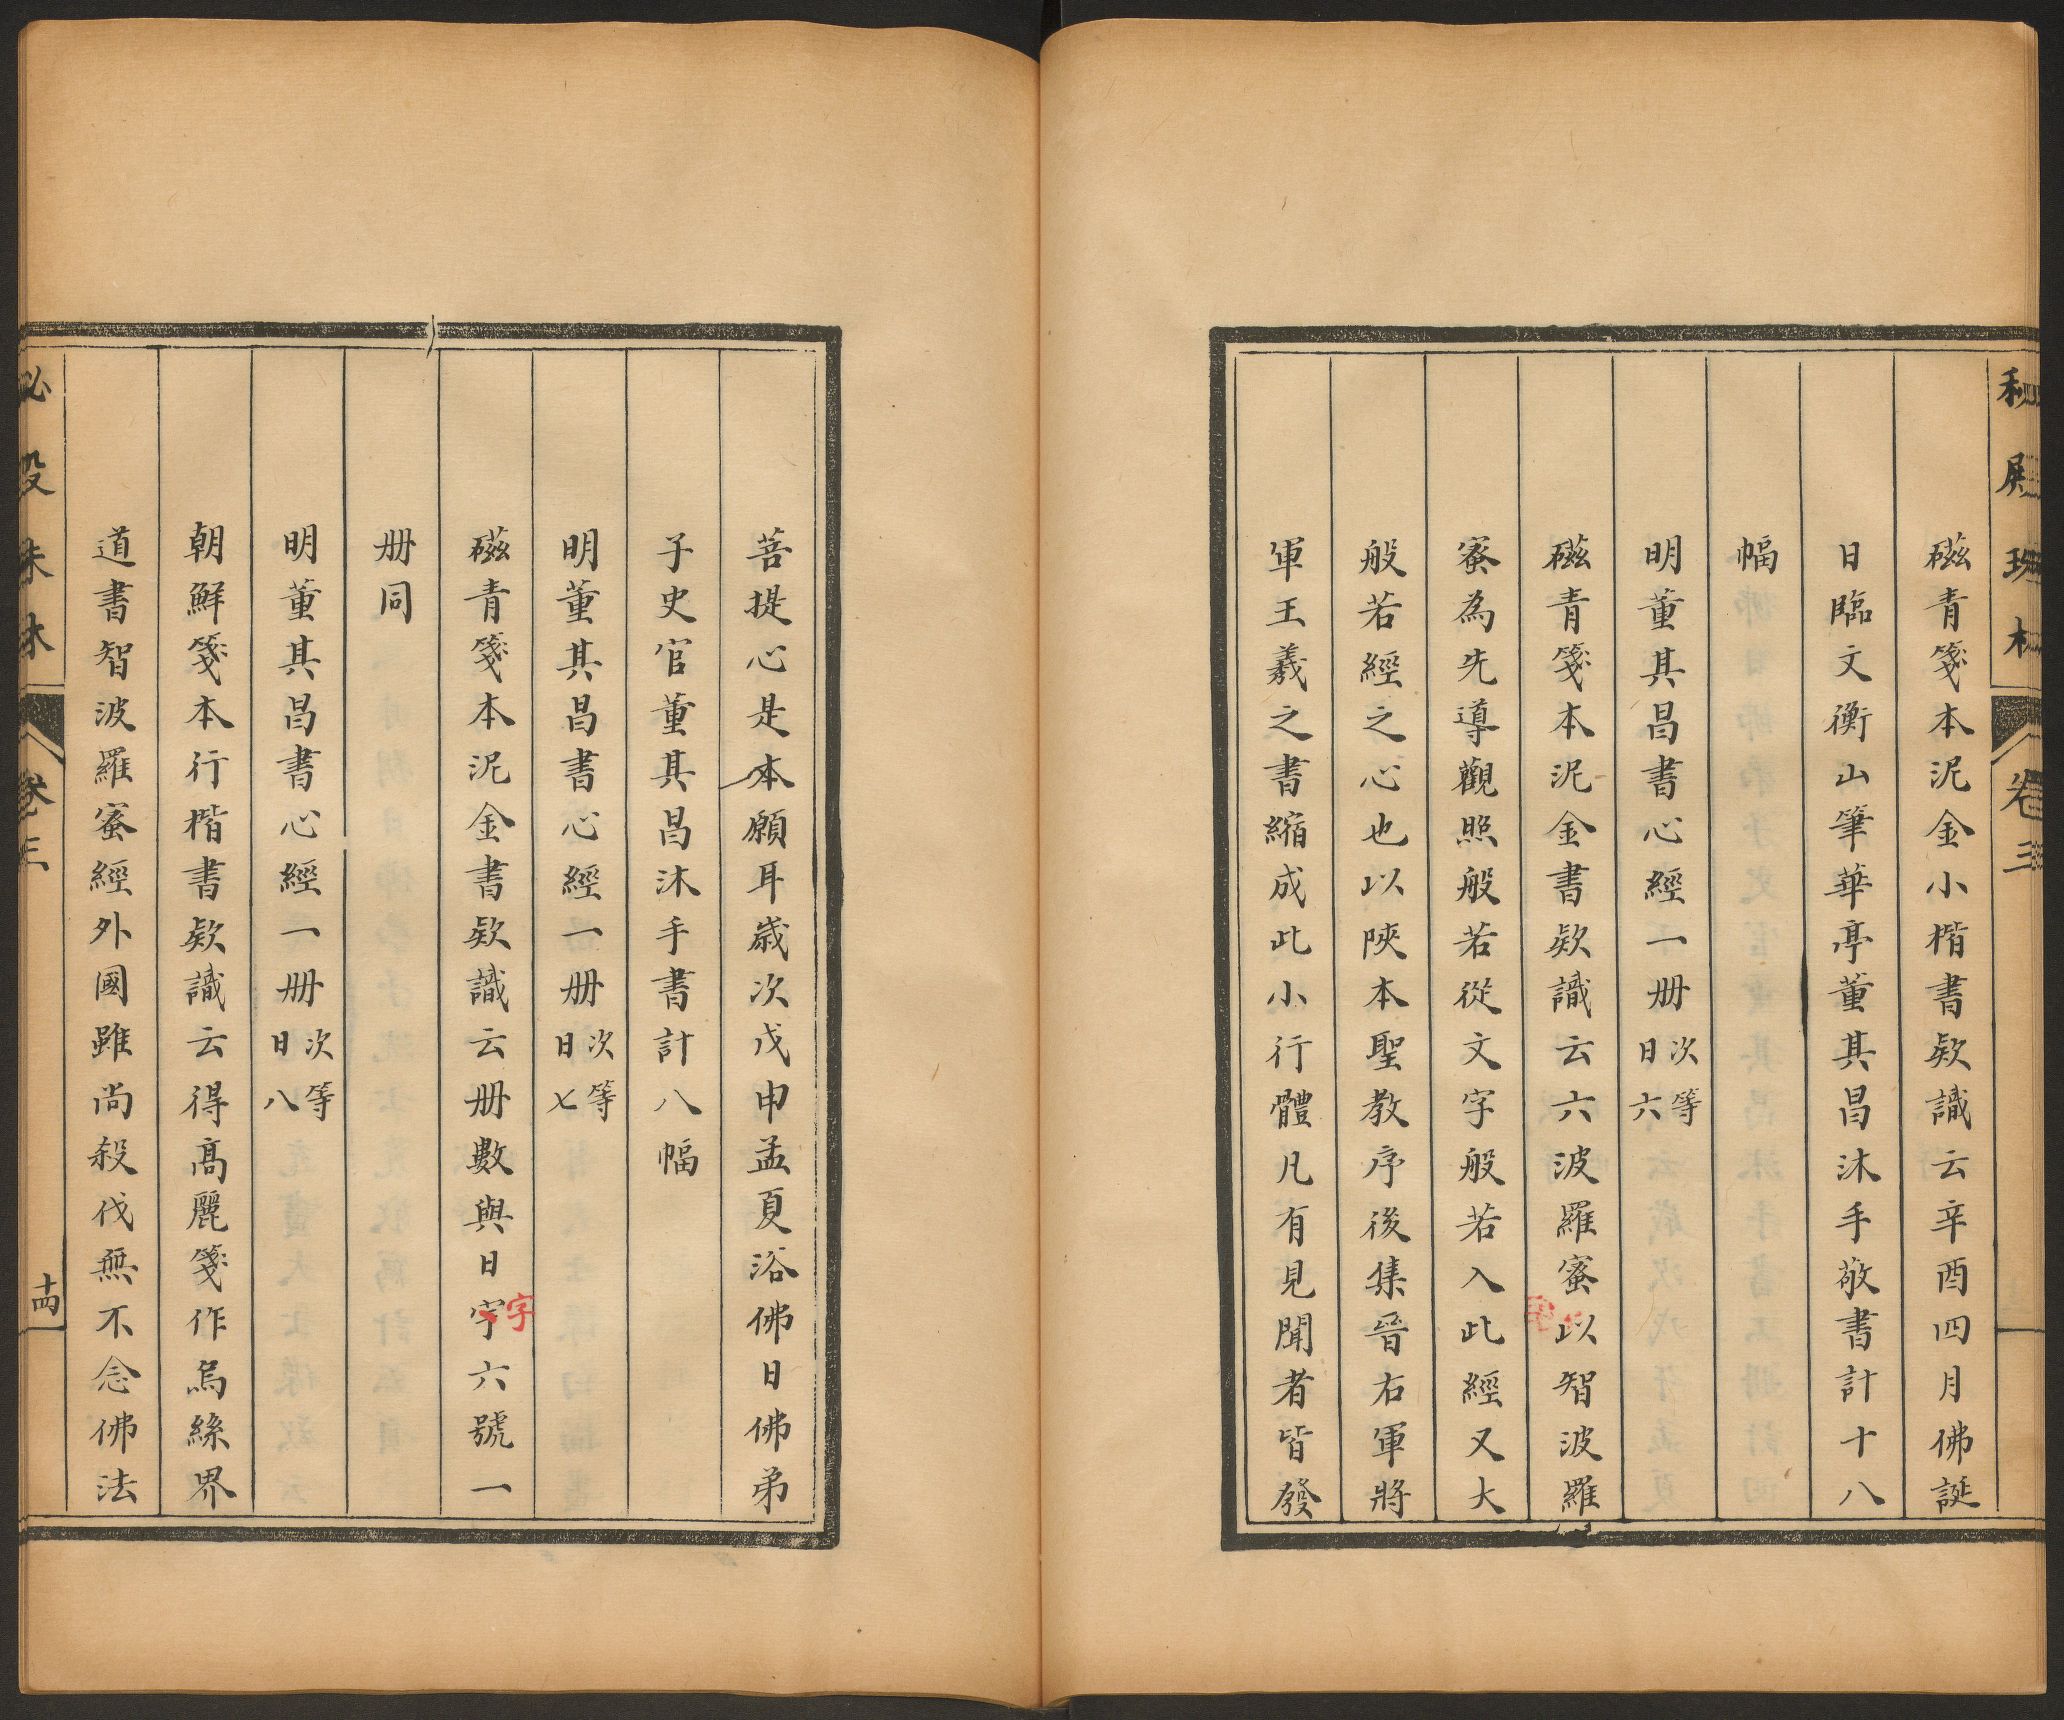 磁青箋本泥金小楷書欵識云辛酉四月佛誕
日臨文衡山筆華亭董其昌沐手敬書計十八
幅
明董其昌書心經一册次等日六
磁青箋本泥金書欵識云六波羅蜜以智波羅
蜜為先導觀照般若從文字般若入此經又大
般若經之心也以陝本聖教序後集晉右軍將
軍王羲之書縮成此小行體凡有見聞者皆發
菩提心是本願耳歲次戊申孟夏浴佛日佛弟
子史官董其昌沐手書計八幅
明董其昌書心經一册次等日七
磁青箋本泥金書欵識云册數與日宇六號一
字
册同
明董其昌書心經一册次等日八
朝鮮箋本行楷書欵識云得髙麗箋作烏絲界
道書智波羅蜜經外國雖尚殺伐無不念佛法
秘殿珠林
卷三
十四